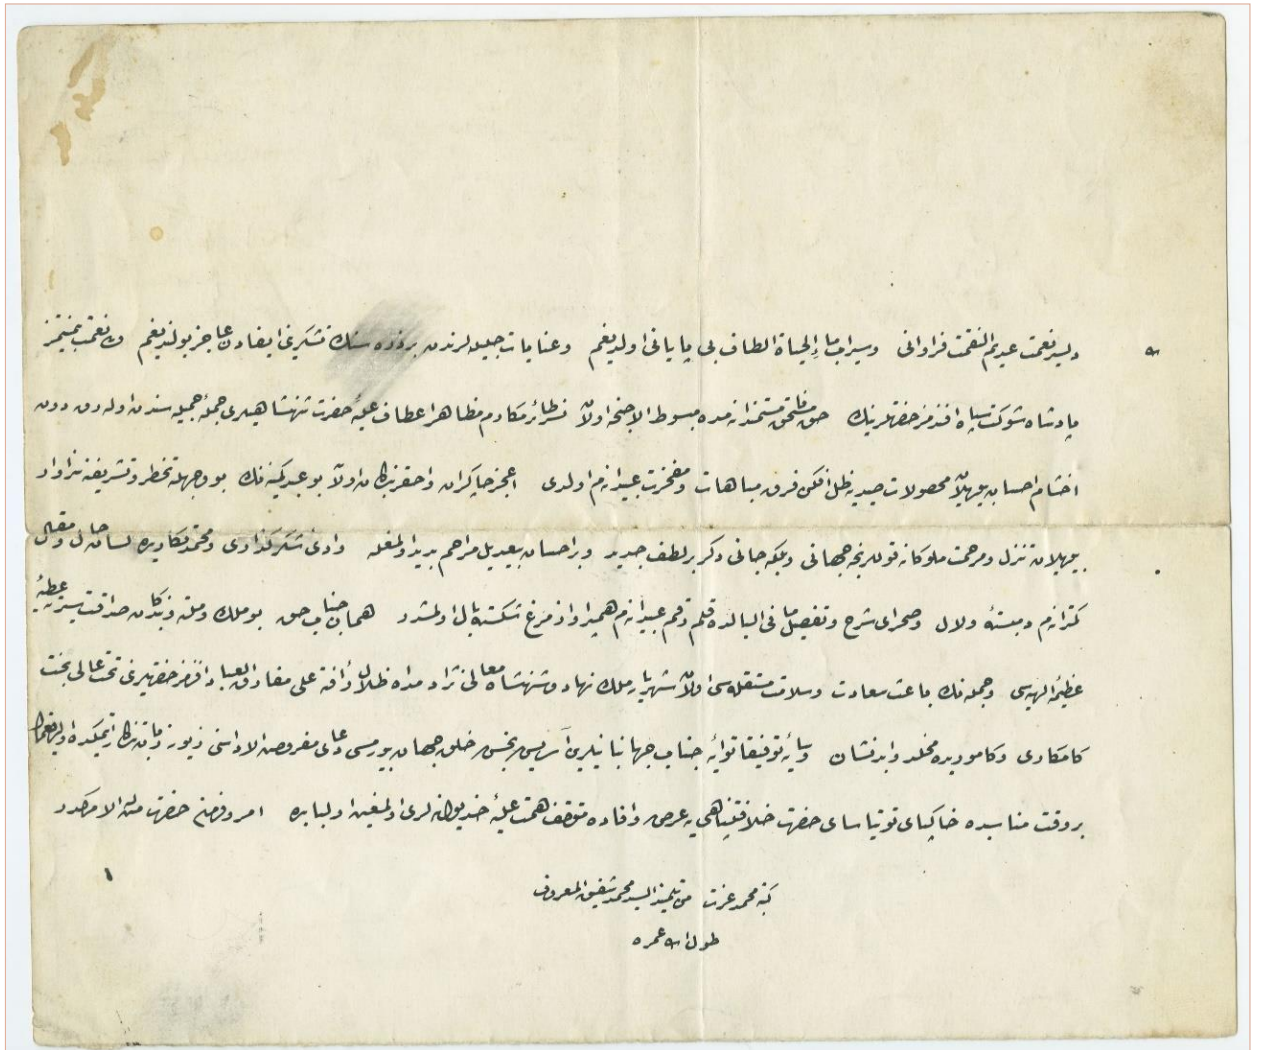 نعمت عديم النقمت فراوانی و سيراب ماء الحياة الطاف بی پايانی اولديغم و عنايات جليله لرندن برذره سنك تشكرينی ايفادن عاجز بولنديغم ولی نعمت بيمنتمز
پادشاه شوكتپناه افندمز حضرتلرينك حق مستمندانه مده مبسوط الاجنحه اولان نظائر مكارم مظاهر اعطاف عليۀ حضرت شهنشاهيلری جملۀ جميله سندن اوله رق دون
احسان بيوريلان محصولات صيديه ظل افكن فرق مباهات و مفخرت عبيدانه م اولدی اعجز چاكران و احقر بندكان اولان بو عبد كمينه نك بو وجهله تخطر و تشريفنه سزاوار
بيوريلان تنزل و مرحمت ملوكانه قوللرينجه جهانی و بلكه جانی دكر بر لطف جديد و بر احسان بيعديل مراحم بديد اولمغله وادئ شكركذاری و محمدتكاريده لسان حال و مقال
كمترانه م بسته و لال و صحرای شرح و تفصيل ما فی البالده قلم رقم عبيدانه م همپرواز مرغ شكسته بال اولمشدر همان جناب حق بو ملك و ملته و بندكان صداقت عطيۀ
عظيمۀ الهيه سی و جمله نك باعث سعادت و سلامت مستقله سی اولان شهريار ملك نهاد و شهنشاه معالی نژاد مد الله ظلال رأفته علی مفارق العباد افندمز حضرتلرينی تخت عالی بخت
كامكاری و كاموريده مخلد و ابدنشان و سايۀ توفيقاتوايۀ جناب جهانبانيلرين آسايش بخش خلق جهان بيورمسی دعای مفروض الاداسنی زيور زبان اتمكده اولديغمك
بر وقت مناسبده خاكپای توتياسای حضرت خلافتپناهی يه عرض و افاده متوقف همت عليۀ خديوانه لری اولمغين اولبابده امر و فرمان حضرت من له الامركدر
كتبه محمد عزت من تلميذ السيد محمد شفيق المعروف
طول الله عمره